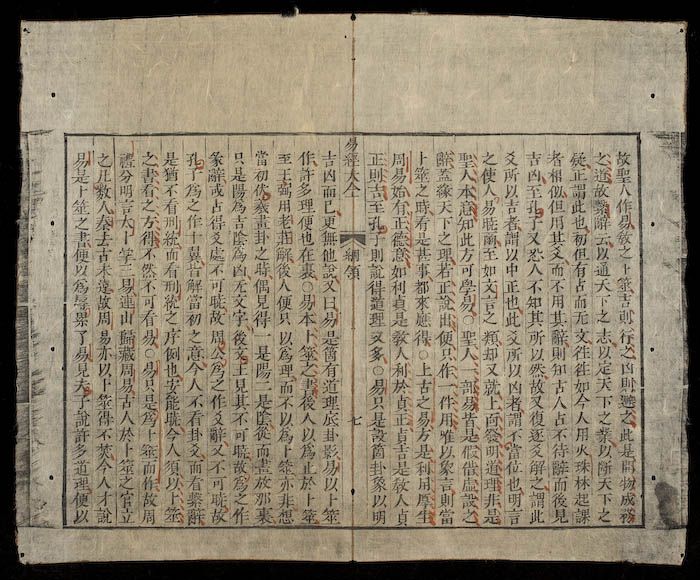 故聖人作易教之卜筮吉則行之凶則避之此是開物成務
之道故繫辭云以通天下之志以定天下之業以斷天下之
疑正謂此也初但有占而无文往往如今人用火珠林起課
者相似但用其爻而不用其辭則知古人占不待辭而後見
吉凶至孔子又恐人不知其所以然故又復逐爻解之謂此
爻所以吉者謂以中正也此爻所以凶者謂不當位也明言
之使人易曉爾至如文言之類却又就上面發明道理非是
聖人本意知此方可學易○聖人一部易皆是假借虛設之
辭蓋緣天下之理若正說出便只作一件用唯以象言則當
卜筮之時看是甚事都來應得○上古之易方是利用厚生
周易始有正德意如利貞是敎人利於貞正貞吉是敎人貞
正則吉至孔子則說得道理又多○易只是設箇卦象以明
易經大全
綱領
七
吉凶而已更無他說又曰易是箇有道理底卦影易以卜筮
作許多理便也在裏○易本卜筮之書後人以為止於卜筮
至王弼用老莊解後人便只以為理而不以為卜筮亦非想
當初伏羲畫卦之時偶見得一是陽二是陰從而畫放那裏
只是陽為吉陰為凶无文字後文王見其不可曉故為之作
彖辭或占得爻處不可曉故周公為之作爻辭又不可曉故
孔子為之作十翼皆解當初之意今人不看卦爻而看繫辭
是猶不看刑統而看刑統之序例也安能曉今人須以卜筮
之書看之方得不然不可看易○易只是為卜筮而作故周
禮分明言太卜掌三易連山歸藏周易古人於卜筮之官立
之凡數人秦去古未遠故周易亦以卜筮得不焚今人才說
易是卜筮之書便以為辱累了易見夫子說許多道理便以